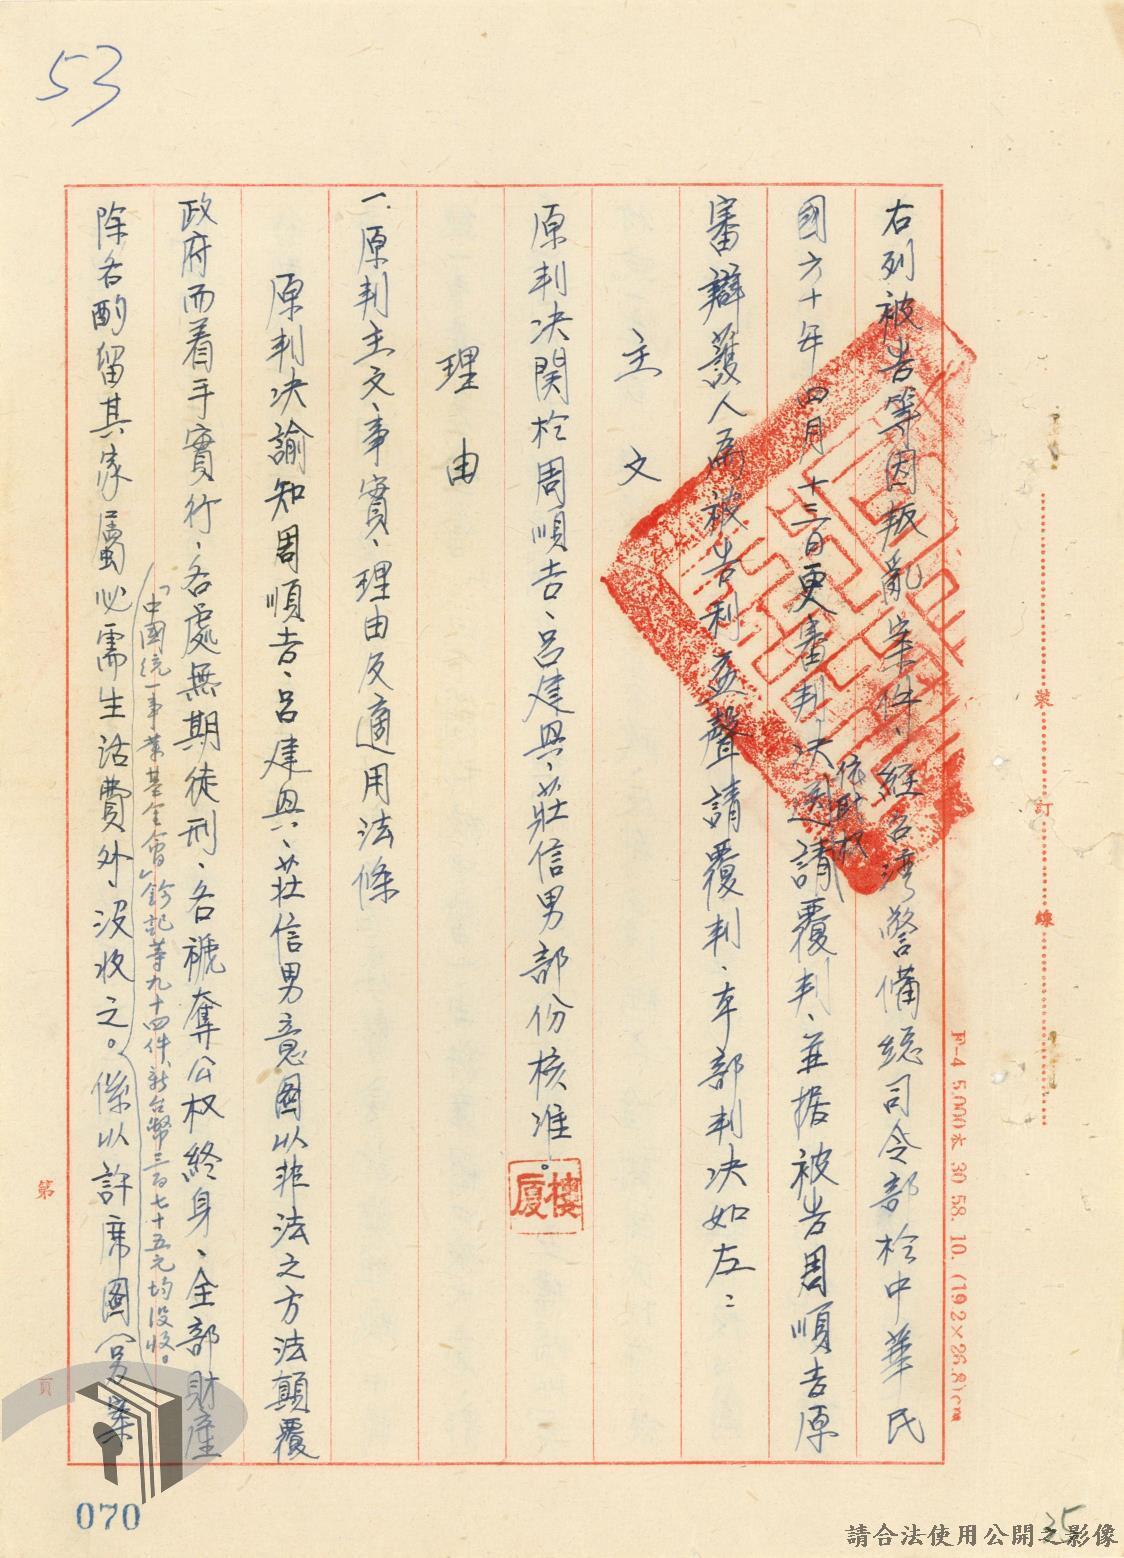 53
右列被告等因叛亂案件、經台湾警備總司令部於中華民
國六十年四月十三日更審判决、依职权送請覆判、並据被告周順吉原
審辯護人為被告利益聲請覆判、本部判决如左：
主文
原判决関於周順吉、呂建興、莊信男部份核准。
樓厦
理由
一、原判主文、事實、理由及適用法條
原判决諭知周順吉、呂建興、莊信男意图以非法之方法顛覆
政府而着手實行、各處無期徒刑、各褫奪公权終身、全部財產
除各酌留其家屬必需生活費外没收之。係以許席圖
「中國统一事業基金會」鈐記等九十四件、新台幣三百七十五元均没收。
裝 訂 線
F-4 5.000本 30 58. 10. (19.2×26.8)cm
第 頁
070
35
請合法使用公開之影像